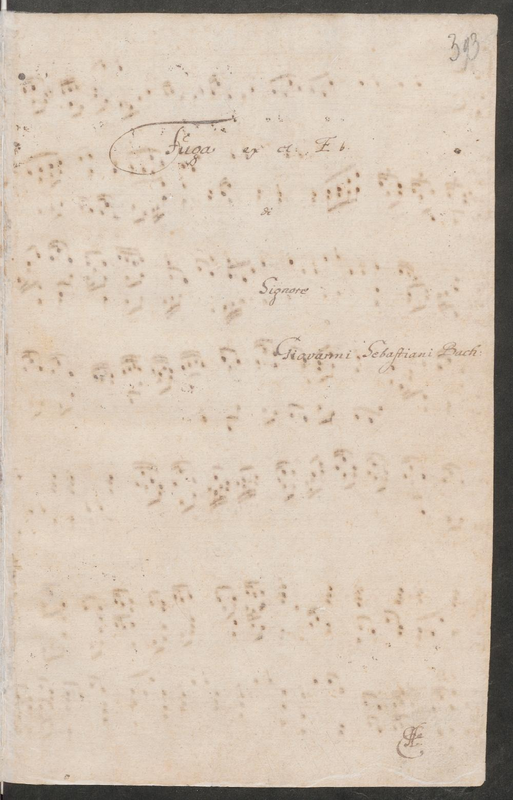 393
Fuga. ex
di
Signore
Giovanni Sebastiani Bach: